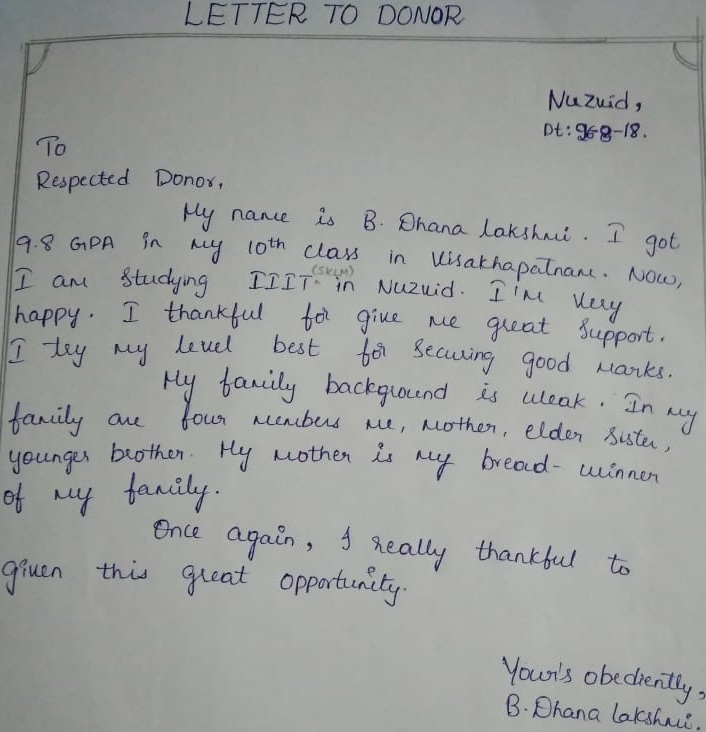 LETTER TO DONOR
Nuzuid,
Dt: -8-18.
To
Respected Donor,
My name is B. Dhana lakshmi. I got
9.8 GPA in my 10th class in Visakhapatnam. Now,
I am studying IIIT (SKLM) in Nuzuid. I'm very
happy. I thankful for give me great support.
I try my level best for securing good marks.
My family background is weak. In my
family are four members me, mother, elder sister,
younger brother. My mother is my bread-winner
of my family.
Once again, I really thankful to
given this great opportunity.
Your's obediently,
B. Dhana lakshmi.